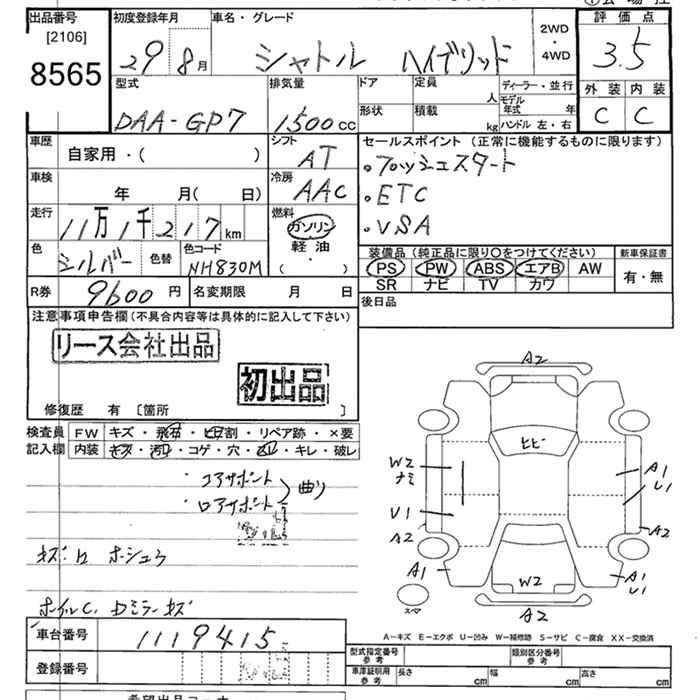 出品番号 初度登録年月 車名・グレード 2WD・4WD 評価点
[2106]
8565 29 8月 シャトル ハイブリッド 3.5
型式 排気量 ドア 定員 人 ディーラー・並行 外装 内装
DAA-GP7 1500cc 形状 積載 kg モデル年式 年 ハンドル 左・右 C C
車歴 自家用・( ) シフト AT
セールスポイント(正常に機能するものに限ります)
・プッシュスタート
・ETC
・VSA
車検 年 月( 日) 冷房 AAC
走行 11万1千217km 燃料 ガソリン 軽油 ( ・ )
色 シルバー 色替 色コード NH830M
装備品(純正品に限り○をつけてください) 新車保証書
PS PW ABS エアB AW 有・無
SR ナビ TV カワ
R券 9600円 名変期限 月 日
後日品
注意事項申告欄(不具合内容等は具体的に記入して下さい)
リース会社出品
初出品
修復歴 有 [箇所 ]
検査員 FW キズ・飛石・ヒビ割・リペア跡・×要
記入欄 内装 キズ・汚れ・コゲ・穴・・キレ・破レ
・コアサポート
・ロアサポート
曲り
ホシュウ
ホイルC.
A2
ヒビ
W2
ナミ
U1
A2
A1
U1
A2
A1
W2
A1
U1
スマ
A2
A-キズ E-エクボ U-凹み W-補修跡 S-サビ C-腐食 XX-交換済
車台番号 1119415
登録番号
型式指定番号 参考 類別区分番号 参考
車庫証明用 参考 長さ cm 幅 cm 高さ cm